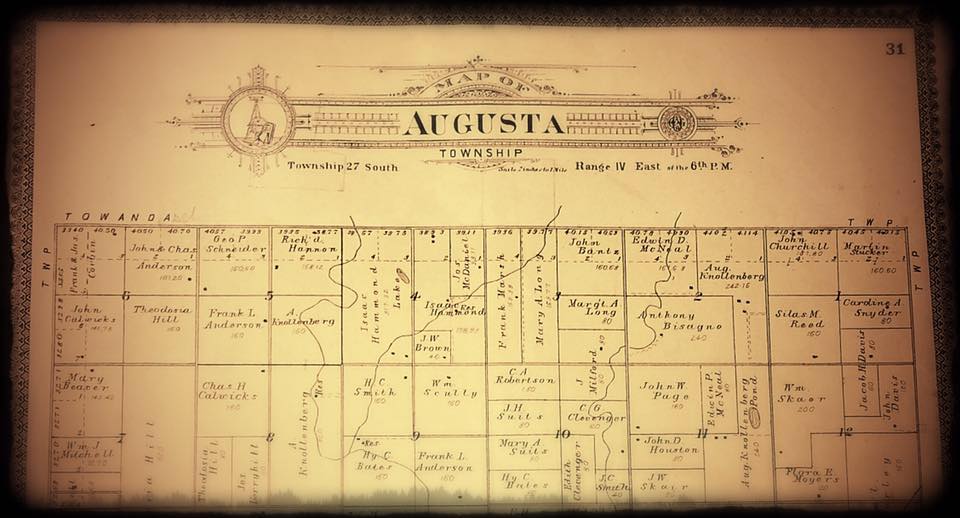 31
MAP OF
AUGUSTA
TOWNSHIP
Township 27 South
Scale 2 inches to 1 Mile
Range IV East of the 6th P.M.
TOWANDA
TWP
TWP
TWP
Frank & Jas. Corbin
John & Chas. Anderson
Geo P Schneider
160.60
Rick'd. Hannon
Isaac Hammond
Lake
Jos McDaniel
Frank Marsh
Mary A Long
John Bantz
160.68
Edwin D. McNeal
Aug. Knollenberg
242.16
John Churchill
Martin Stucker
160.60
6
5
4
3
2
1
John Calwicks
Theodosia Hill
160
Frank L Anderson
160
A. Knollenberg
160
Isaac Hammond
Res
J.W Brown
40
Margt A Long
80
Anthony Bisagno
240
Silas M. Reed
160
Caroline A Snyder
80
Mary Beaser
Chas H Calwicks
160
A Knollenberg
Res
H C Smith
160
Wm Scully
160
C.A Robertson
J.H Suits
80
J Milford
C G Clevenger
John W Page
160
Edwin P. McNeal
Aug Knollenberg
240
Pond
Wm Skaer
200
Jacob H Davis
John Davis
7
8
9
10
11
12
Wm J Mitchell
Theodosia Hill
Jos Berryhill
Res
Hy C Bates
160
Frank L Anderson
160
Mary A Suits
80
Hy C Bates
80
Edith Clevenger
J.C Smith
John D Houston
80
J W Skair
Flora E. Moyers